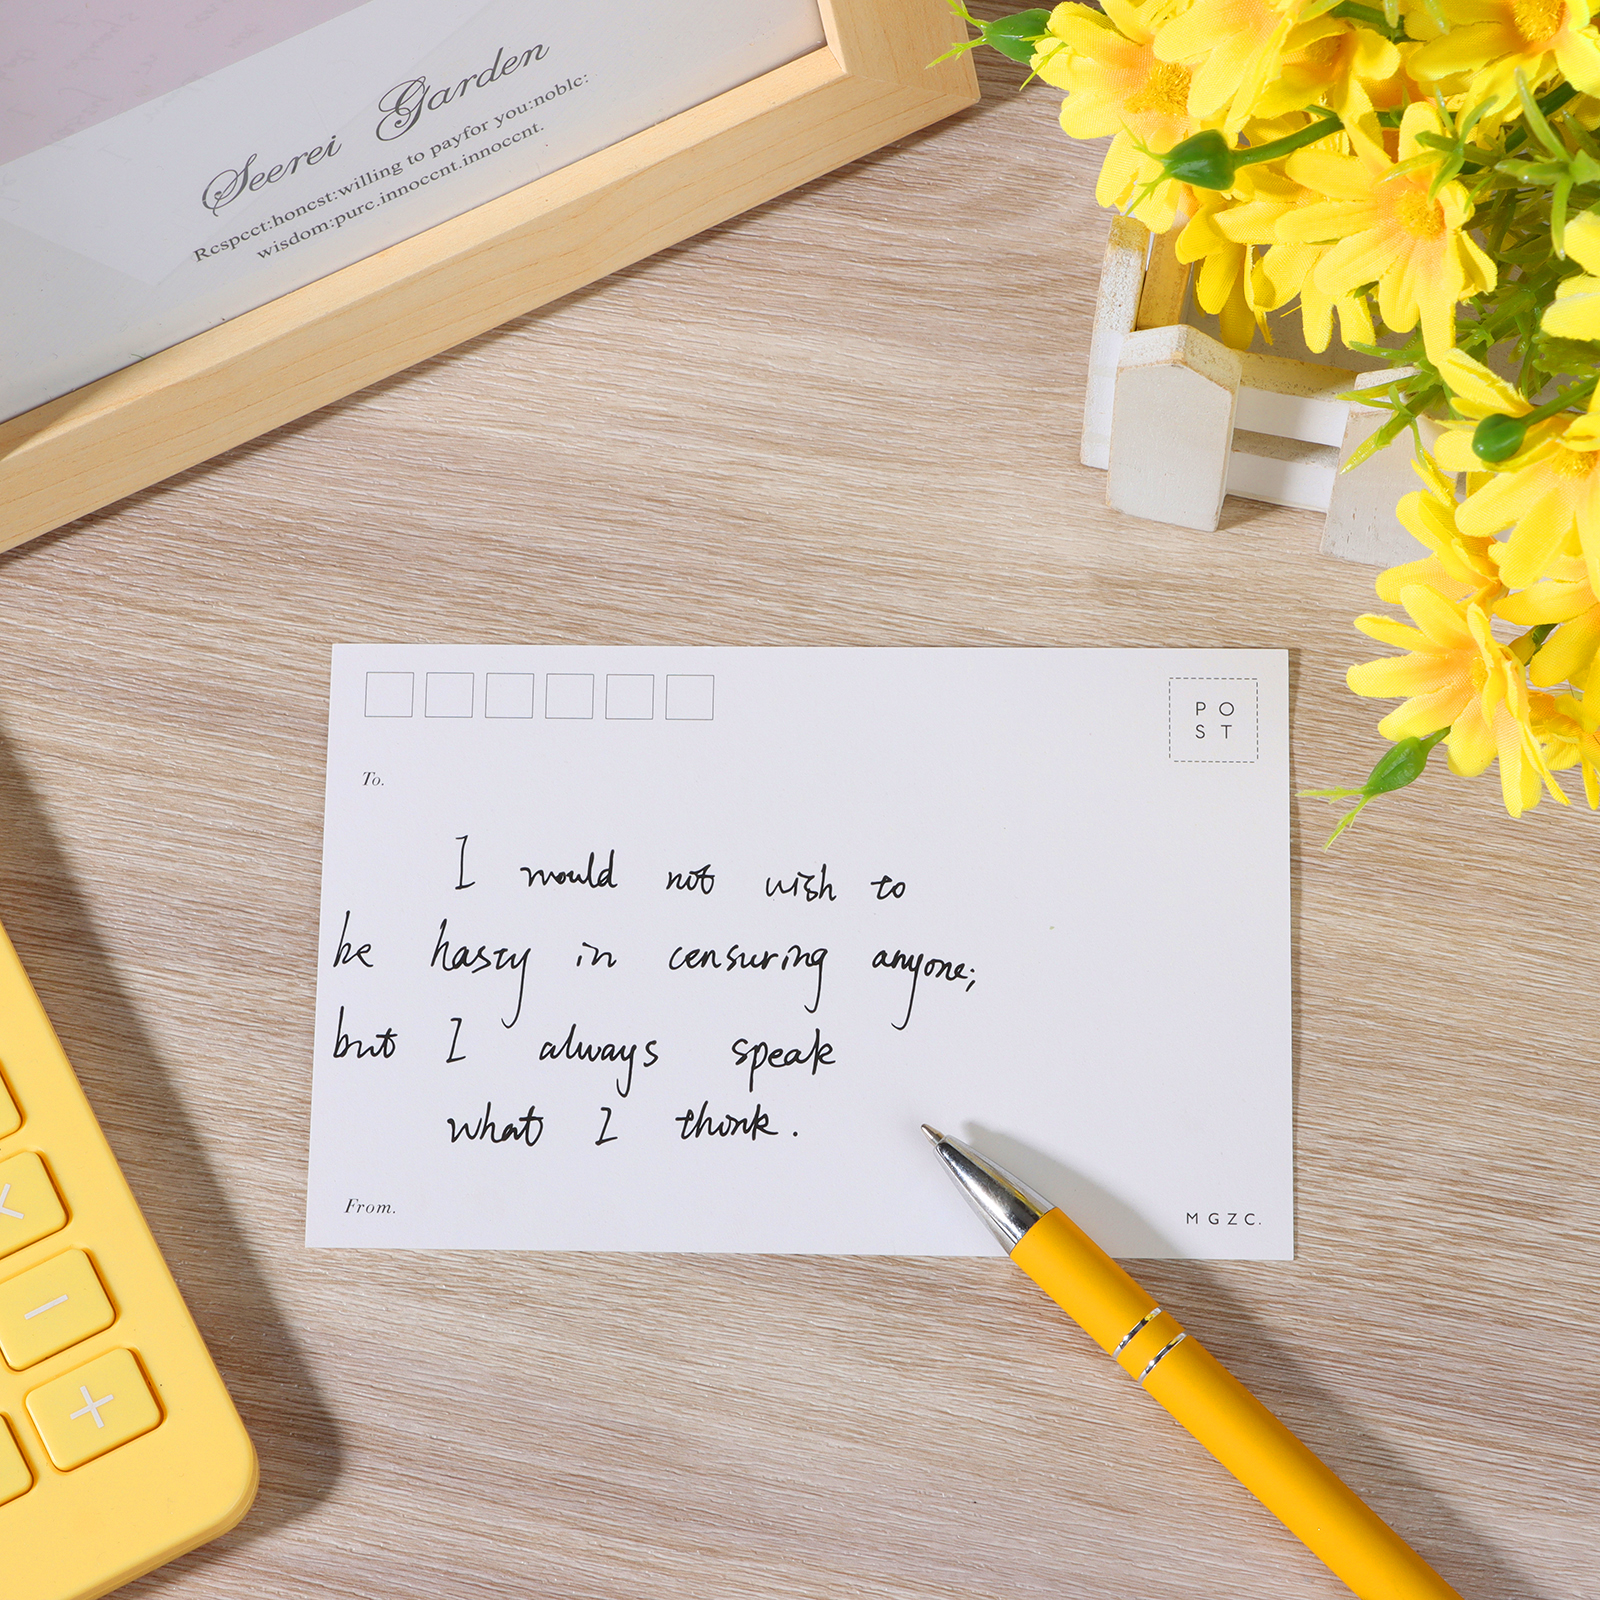 Seerei Garden
Rcspcct:honcst:willing to payfor you:noblc:
wisdom:purc.innoccnt.innoccnt.
PO
ST
To.
I would not wish to
be hasty in censuring anyone;
but I always speak
what I think.
From.
MGZC.
−
+